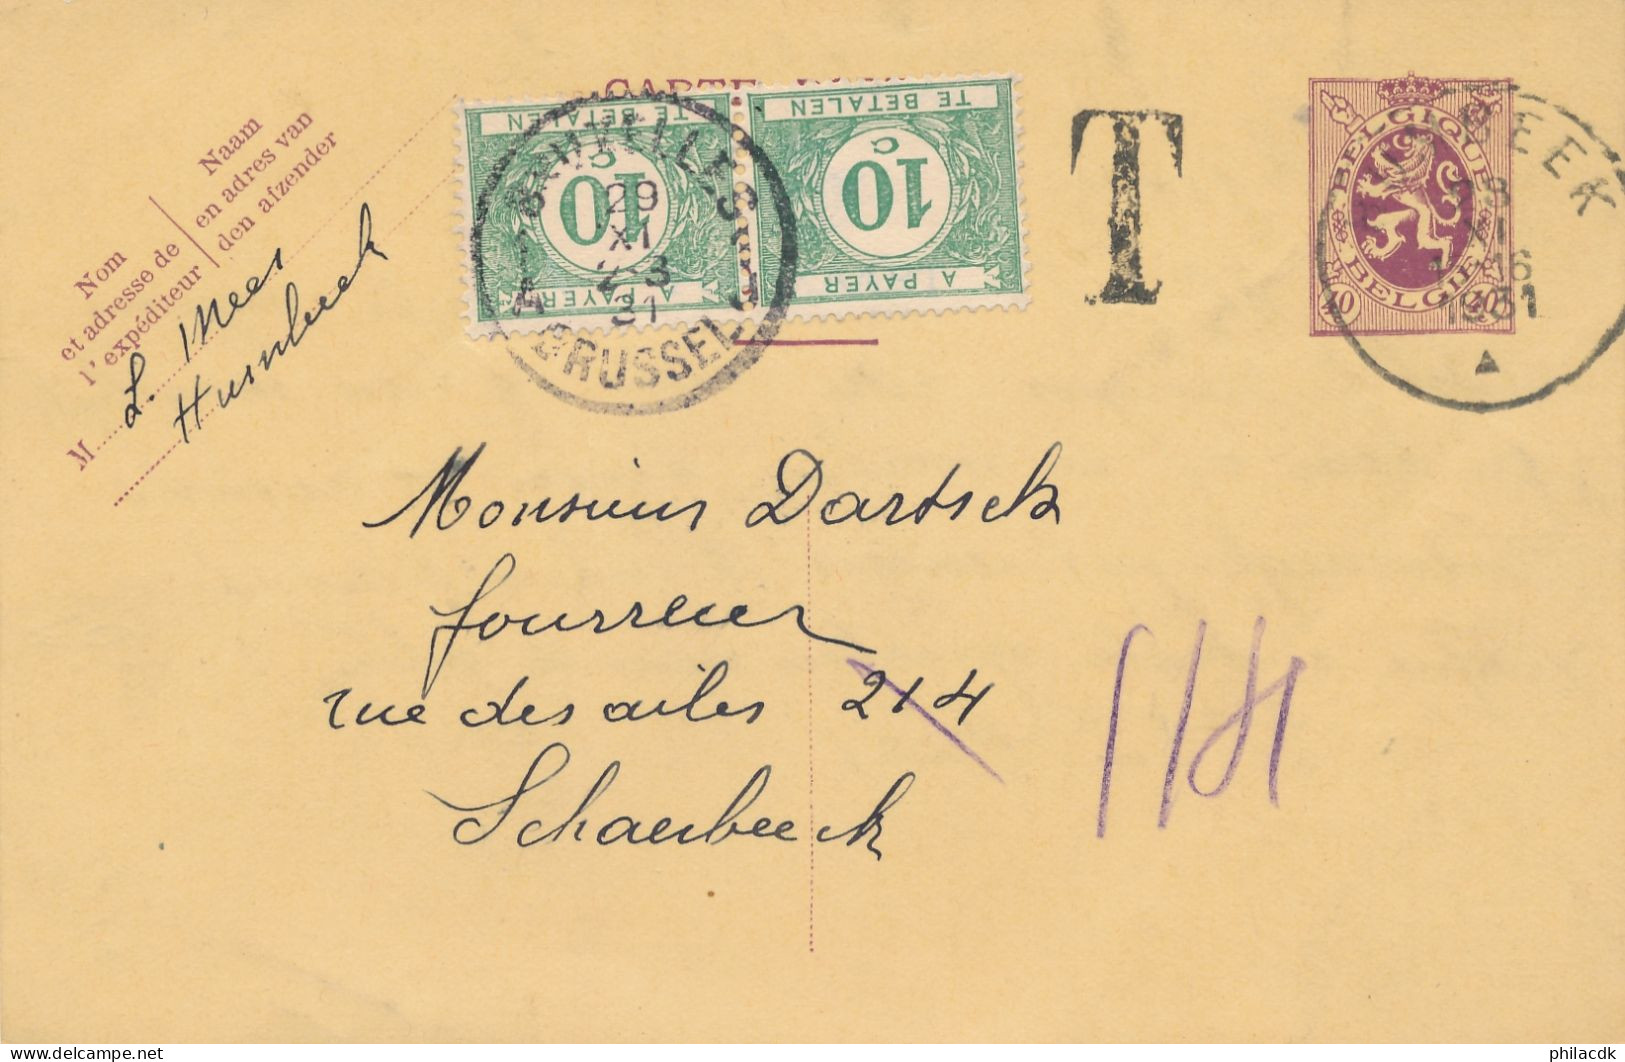 CARTE
Nom
et adresse de
l'expéditeur
Naam
en adres van
den afzender
M
L. Mees
TE BETALEN
10
C
A PAYER
TE BETALEN
10
C
A PAYER
BRUXELLES
29
XI
2-3
31
BRUSSEL
T
BELGIQUE
BELGIË
40 40
BEEK
XI
16
1931
Monsieur Dartsek
fourreur
rue des ailes 214
Schaerbeeck
delcampe.net
philacdk